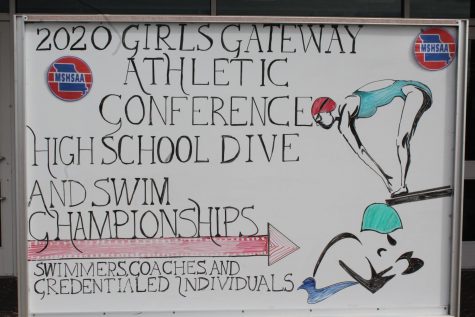 2020 GIRLS GATEWAY
MSHSAA
MSHSAA
ATHLETIC
CONFERENCE
HIGH SCHOOL DIVE
AND SWIM
CHAMPIONSHIPS
SWIMMERS, COACHES, AND
CREDENTIALED INDIVIDUALS